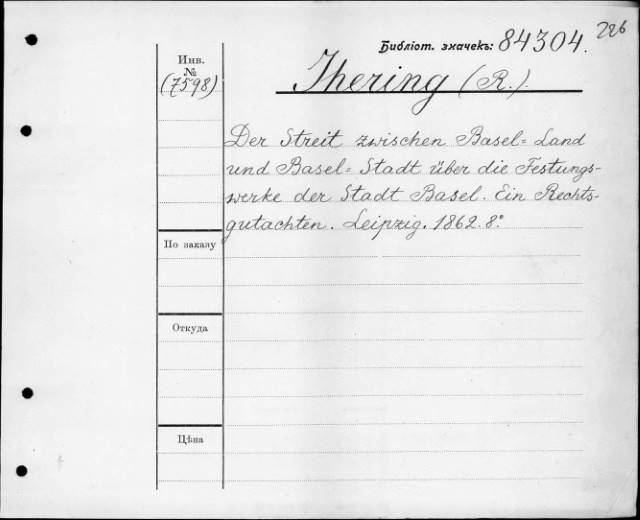 226
Библіот. значекъ: 84304.
Инв.
№
(7598)
Jhering (R.).
Der Streit zwischen Basel=Land
und Basel=Stadt über die Festungs-
werke der Stadt Basel. Ein Rechts-
gutachten. Leipzig. 1862. 8.°
По заказу
Откуда
Цѣна